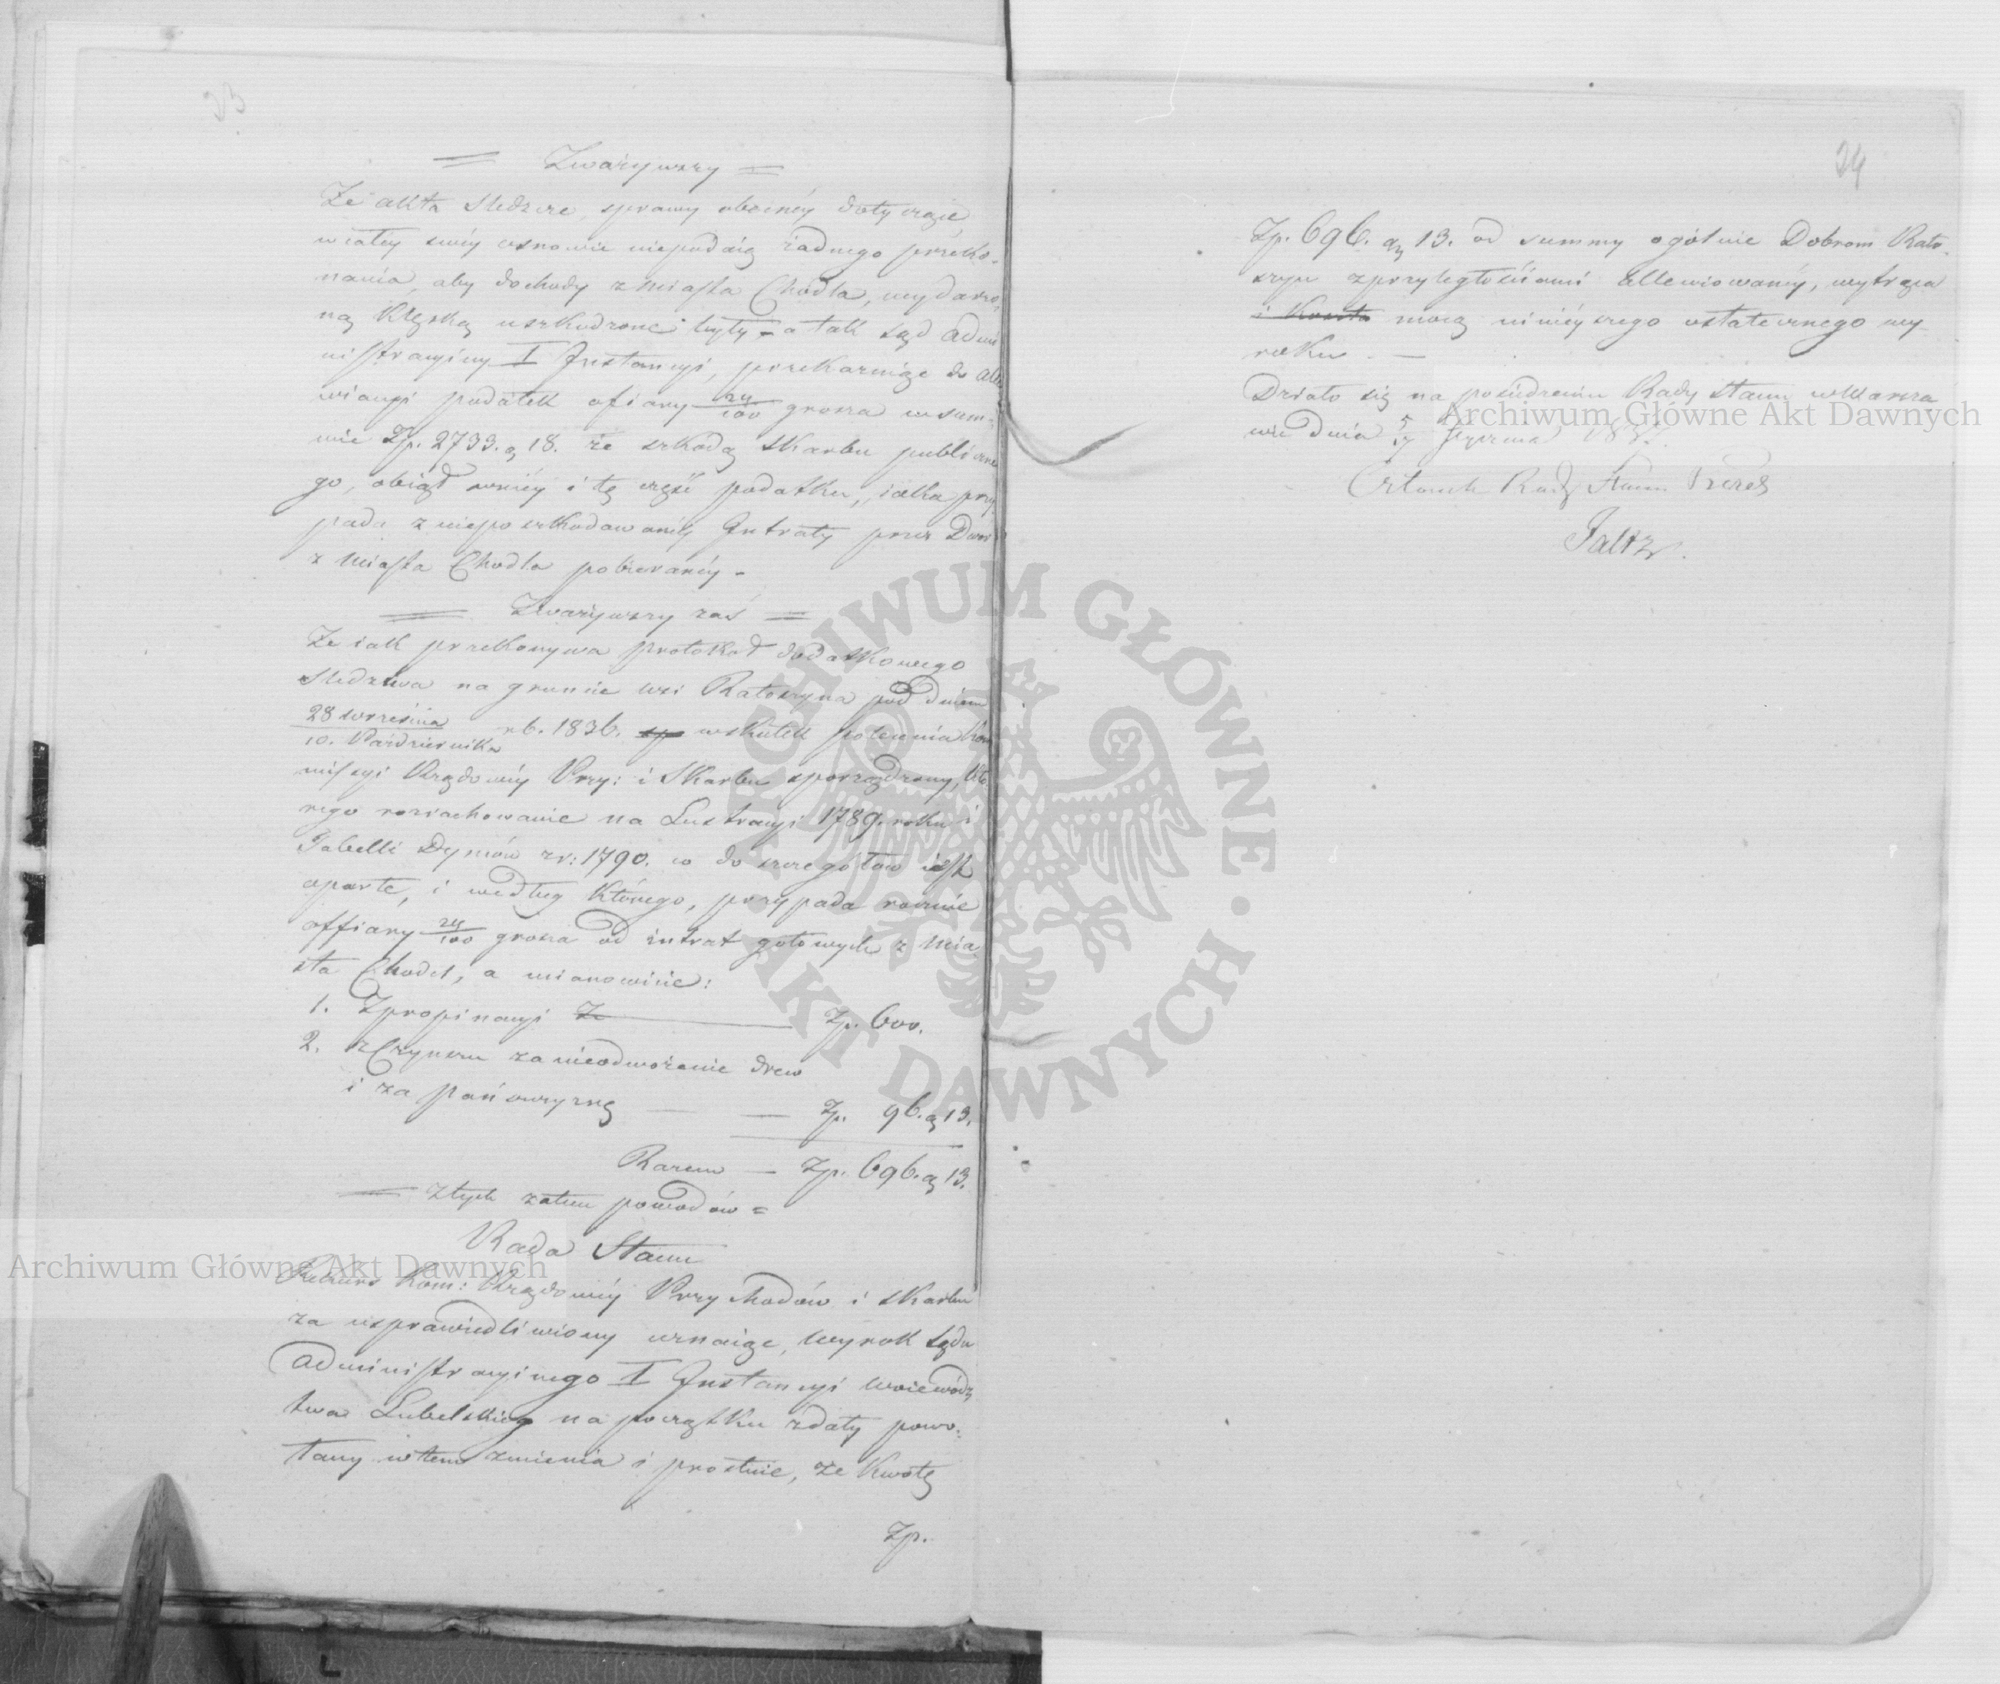 23
= Zważywszy =
Że akta śledcze, sprawy obecnéy dotyczące
w całey swéy osnowie niepodaią żadnego przeko-
nania, aby dochody z Miasta Chodla, wydarzo-
ną klęską uszkodzone były - a tak Sąd Admi
nistracyiny I Instancyi, przekazuiąc do alle
wiacyi podatek ofiary 24/100 grosza w sum-
mie Zp. 2733. g 18. ze szkodą Skarbu publiczne
go, obiął w niéy i tę część podatku, iaka przy
pada z nieposzkodowanéy Intraty przez Dwór
z Miasta Chodla pobieranéy -
= Zważywszy zaś =
Że iak przekonywa protokół dodatkowego
śledztwa na gruncie wsi Ratoszyna pod dniem
28 września / 10. Października rb. 1836. w skutek polecenia Kom
missyi Rządowéy Przy: i Skarbu sporządzony, któ
rego rozrachowanie na Lustracyi 1789. roku i
Tabelli Dymów zr: 1790. co do szczegółów iest
oparte, i według którego, przypada rocznie
offiary 24/100 grosza od intrat gotowych z Mia
sta Chodel, a mianowicie:
1. Z propinacyi Ze — Zp. 600.
2. z Czynszu za nieodwożenie drew
i za pańszczyznę — — Zp. 96. g 13.
Razem — Zp. 696. g 13.
= Z tych zatem powodów =
Rada Stanu
Rekurs Kom: Rządowéy Przychodów i Skarbu
za usprawiedliwiony uznaiąc, Wyrok Sądu
Administracyinego I Instancyi Woiewódz
twa Lubelskiego na początku z daty powo-
łany w tem zmienia i prostuie, że kwotę
Zp.
24
Zp. 696. g 13. od summy ogólnie Dobrom Rato-
szyn z przyległościami allewiowanéy, wytrąca
i Koszta mocą ninieyszego ostatecznego wy-
roku. —
Działo się na posiedzeniu Rady Stanu w Warsza
wie dnia 5/17 Stycznia 183
Członek Rady Stanu Prezes
Faltz.
Archiwum Główne Akt Dawnych
Archiwum Główne Akt Dawnych
ARCHIWUM GŁÓWNE · AKT DAWNYCH ·